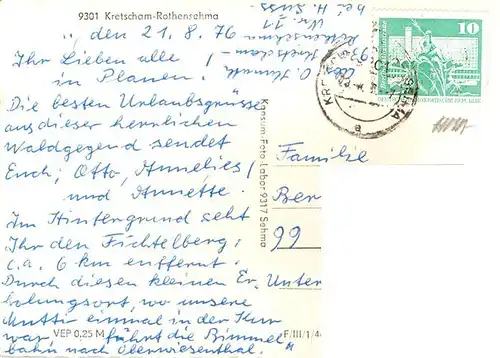 9301 Kretscham-Rothensehma
" den 21.8.76
Ihr Lieben alle /
in Planen!
Die besten Urlaubsgrüsse
aus dieser herrlichen
Waldgegend sendet
Euch; Otto, Annelies /
und Annette.
Im Hintergrund seht
Ihr den Fichtelberg;
c.a. 6 km entfernt.
Durch diesen kleinen Er-
holungsort, wo unsere
Mutti einmal in der Kur
war, führt die Bimmel"
bahn nach Oberwiesenthal.
VEP 0,25 M
F/III/1/4
Konsum-Foto-Labor 9317 Sehma
Familie
Ber
99
Unter
bei H. Suss
Nr. 11
Abs. O.
10